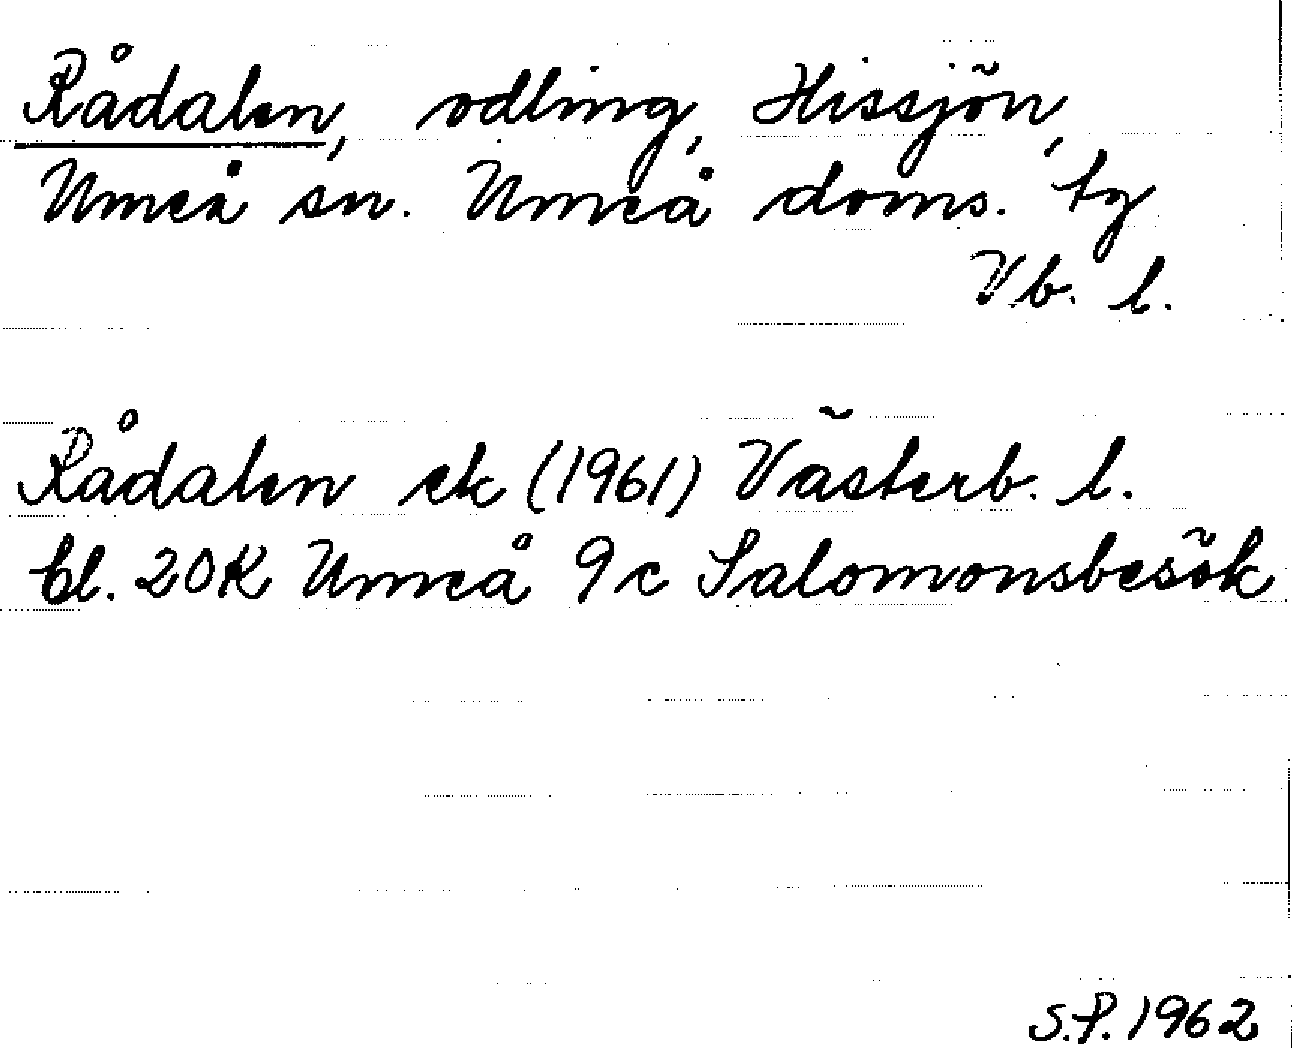 Rådalen, odling, Hissjön,
Umeå sn. Umeå doms. tg
Vb. l.
Rådalen ek (1961) Västerb. l.
bl. 20K Umeå 9c Salomonsbesök
S.P. 1962